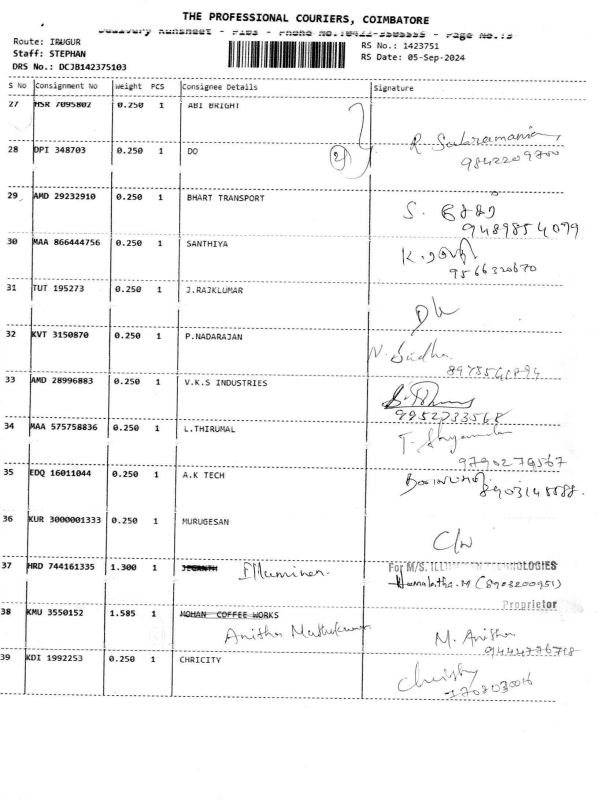 THE PROFESSIONAL COURIERS, COIMBATORE
Delivery Runsheet - PIDS - Phone No.:0422-
Route: IRUGUR
RS No.: 1423751
Staff: STEPHAN
RS Date: 05-Sep-2024
DRS No.: DCJB142375103
S No Consignment No Weight PCS Consignee Details Signature
27 HSR 7095802 0.250 1 ABI BRIGHT
28 DPI 348703 0.250 1 DO 2 R
9842209700
29 AMD 29232910 0.250 1 BHART TRANSPORT S.
9489854099
30 MAA 866444756 0.250 1 SANTHIYA K.
9566320670
31 TUT 195273 0.250 1 J.RAJKUMAR
32 KVT 3150870 0.250 1 P.NADARAJAN N. Sudha
33 AMD 28996883 0.250 1 V.K.S INDUSTRIES
34 MAA 575758836 0.250 1 L.THIRUMAL
9790279567
35 EDQ 16011044 0.250 1 A.K TECH
36 KUR 3000001333 0.250 1 MURUGESAN C/W
37 HRD 744161335 1.300 1 JEGANTH Illuminen. For M/S. TECHNOLOGIES
Hemalatha.M (8903200951)
Proprietor
38 KMU 3550152 1.585 1 MOHAN COFFEE WORKS
Anitha Muthukumar M. Anitha
9444776718
39 KDI 1992253 0.250 1 CHRICITY Christy